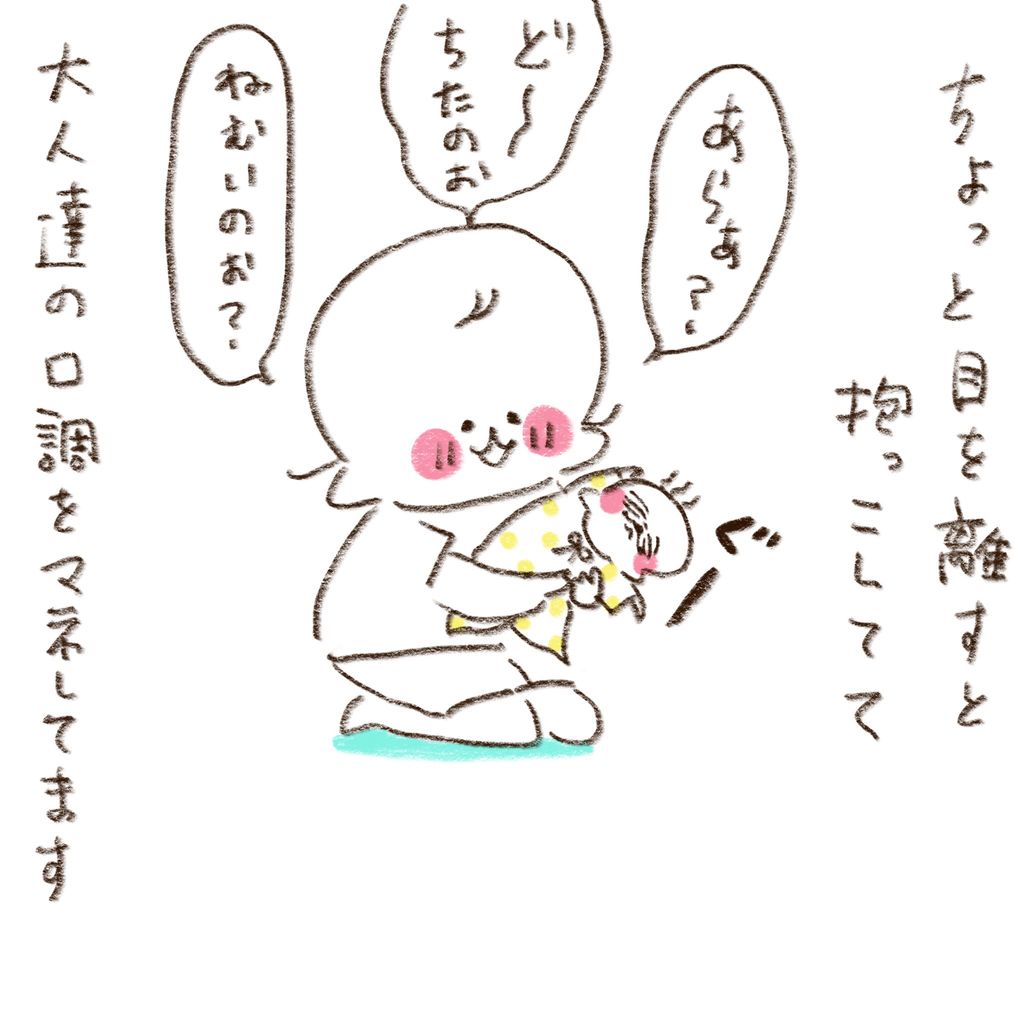 ちょっと目を離すと
抱っこしてて
あらあ?
ど〜
ちたのお
ねむいのお?
ぐ
大人達の口調をマネしてます